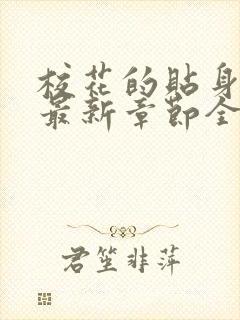 校花的贴身
最新章節全
君笙非萍